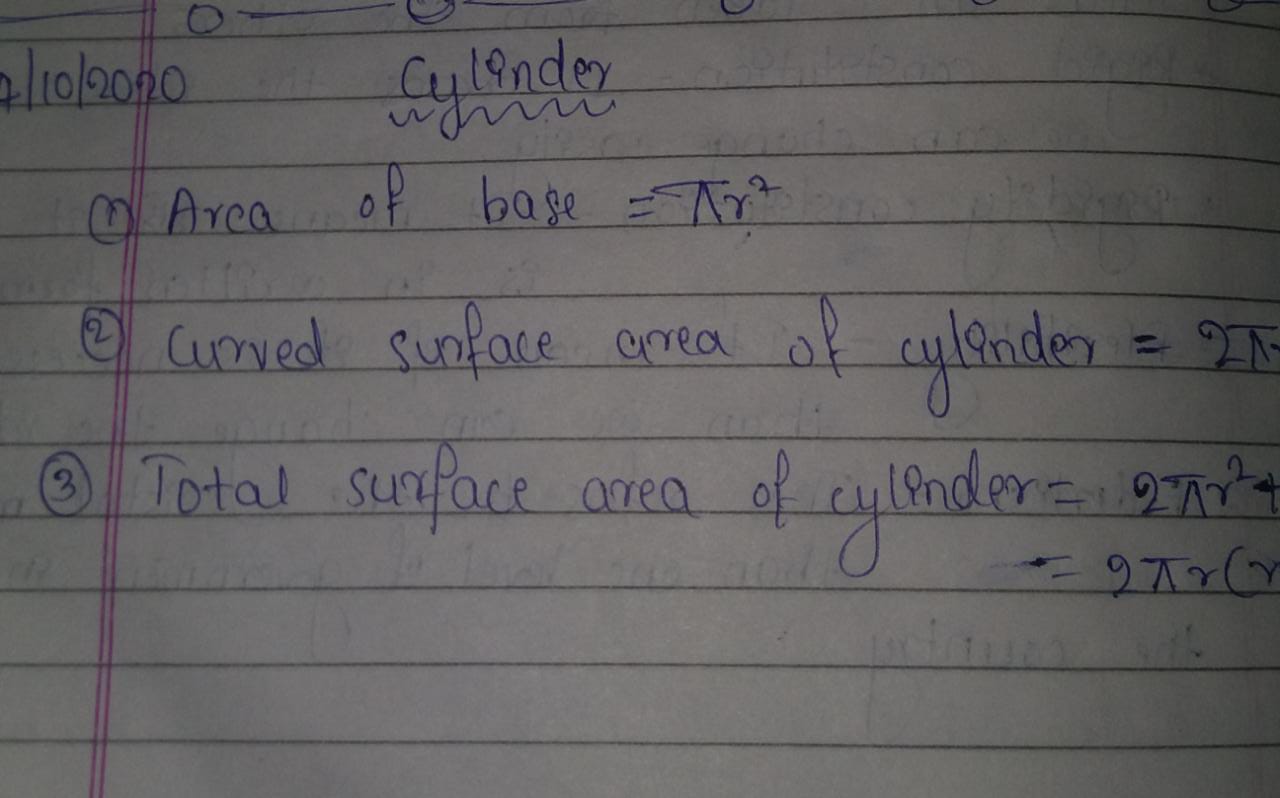 /10/2020 Cylinder
① Area of base = πr²
② Curved surface area of cylinder = 2π
③ Total surface area of cylinder = 2πr² +
= 2πr(r